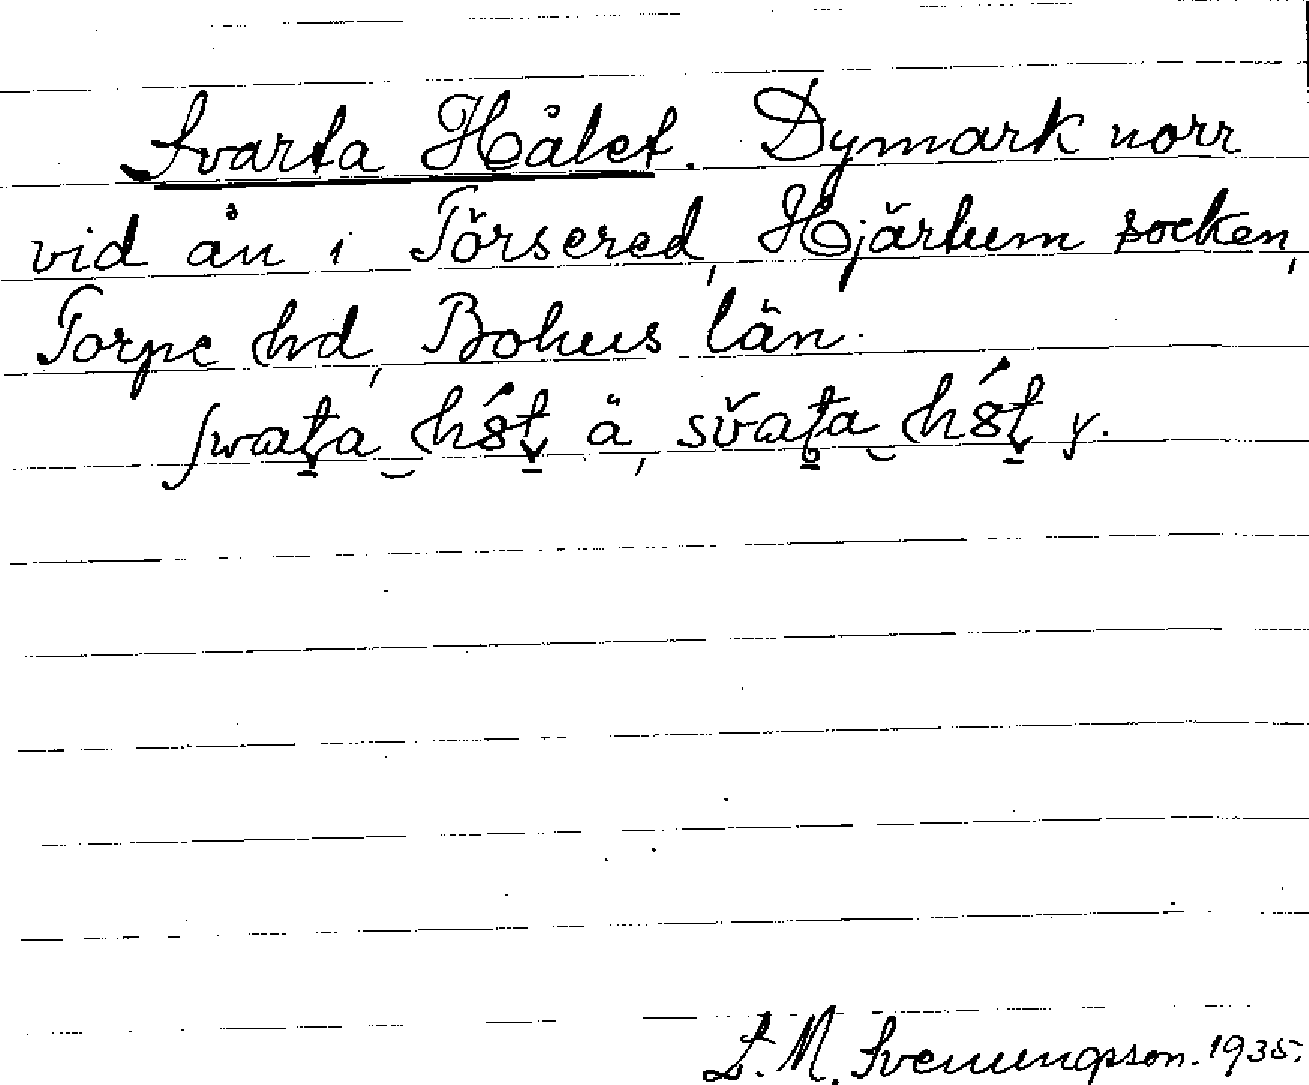 Svarta Hålet. Dymark norr
vid ån i Törsered, Hjärtum socken,
Torpe hd, Bohus län.
ä, y.
S. M. Svenungsson. 1935.